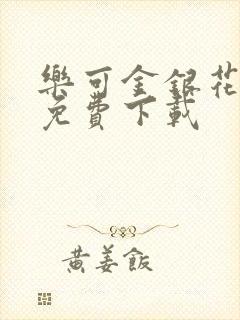 樂可金銀花
免費下載
黃姜飯